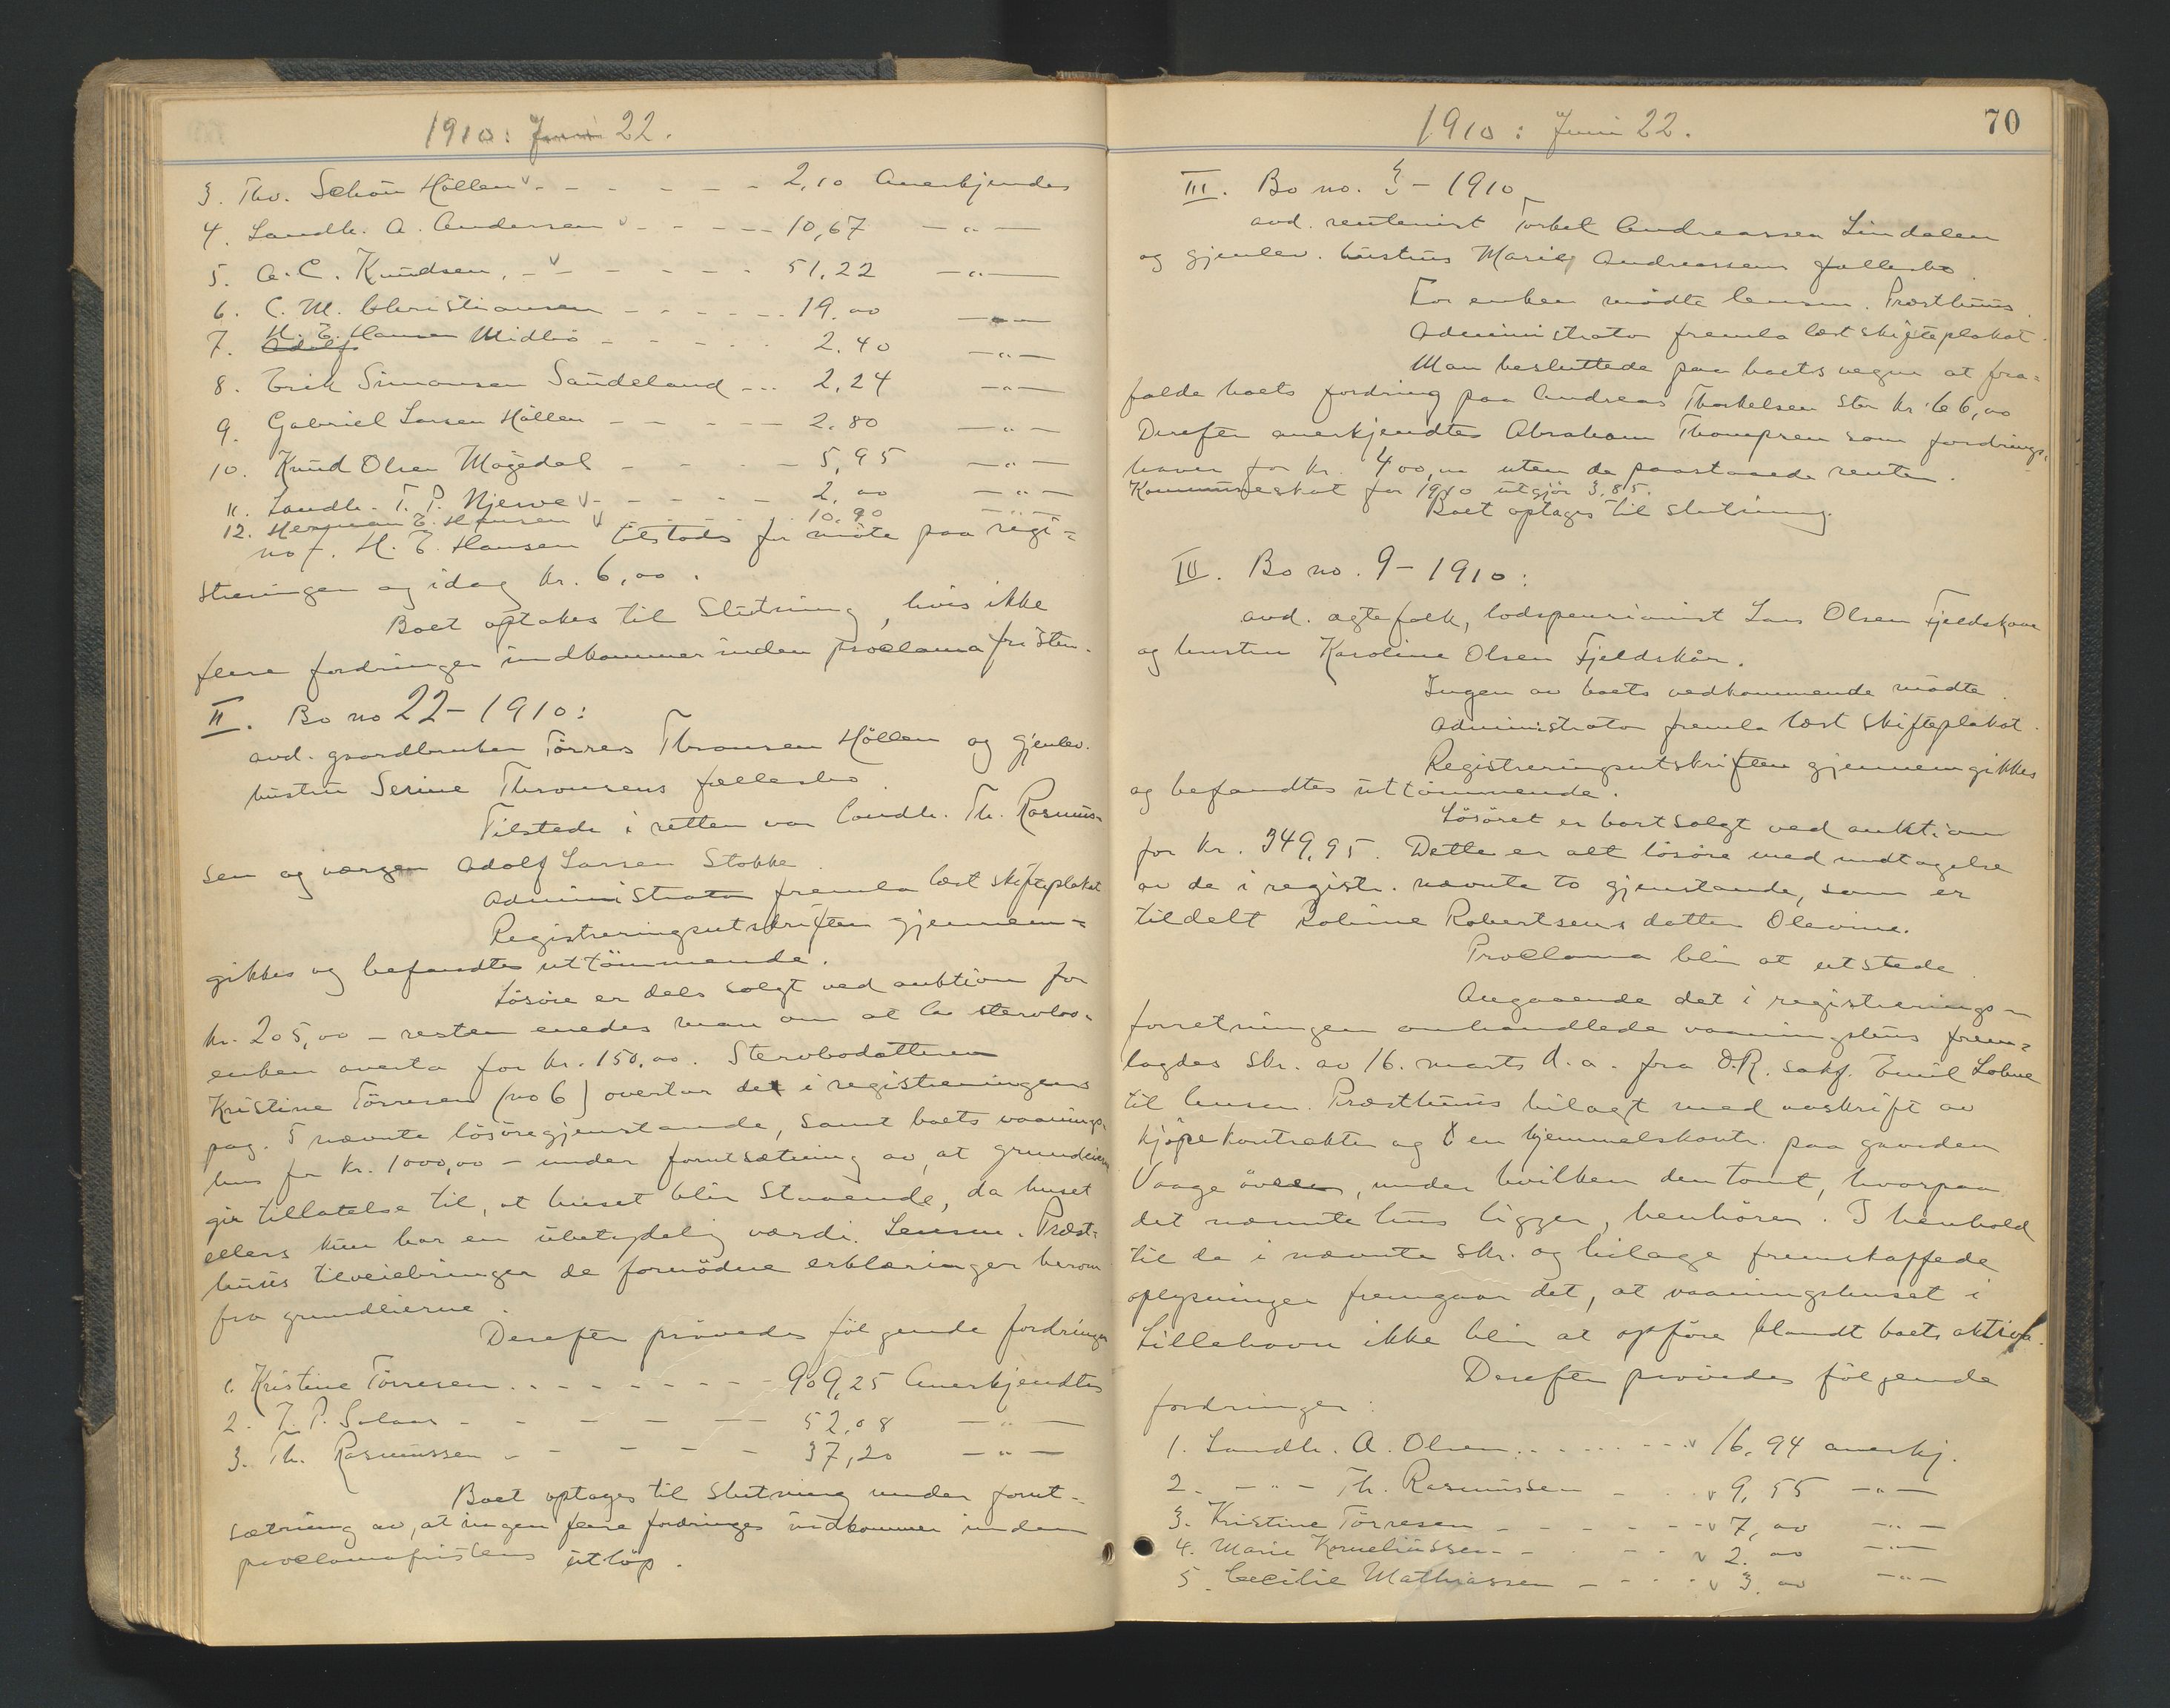 1910: Juni 22.
3. Thv. Schøu Höllen - - - - - - 2,10 Anerkjendes
4. Landh. A. Andersen - - - - - 10,67 — " —
5. A. C. Knudsen - - - - - - 51,22 — " —
6. C. M. Christiansen - - - - - - 19,00 — " —
7. H. E. Hansen Midbö - - - - - 2.40 — " —
8. Erik Simonsen Saudeland - - - 2,24 — " —
9. Gabriel Larsen Höllen - - - - - 2.80 — " —
10. Knud Olsen Mogedal - - - - - 5,95 — " —
11. Landh. T. P. Njerve - - - - - 2,00 — " —
12. Herman E. Hansen 10,90 — " —
no 7. H. E. Hansen tilstodes for möte paa regi=
streringen og idag kr. 6,00.
Boet optakes til Slutning, hvis ikke
flere fordringer indkommer inden proclamafristen.
II. Bo no 22 - 1910:
avd. gaardbruker Törres Thronsen Höllen og gjenlev.
hustru Serine Thronsens fællesbo
Tilstede i retten var landh. Th. Rasmus=
sen og vergen Adolf Larsen Stokke
Administrator fremla læst skifteplakat
Registreringsutskriften gjennem=
gikkes og befandtes uttömmende.
Lösöre er dels solgt ved auktion for
kr. 205,00 - resten enedes man om at la stervbo=
enken overta for kr. 150,00. Stervbodatteren
Kristine Törresen (no 6) overtar det i registreringens
pag. 5 nævnte lösöregjenstande, samt boets vaanings=
hus for kr. 1000,00 - under forutsætning av, at grundeieren
gir tillatelse til, at huset blir staaende, da huset
ellers kun har en ubetydelig værdi. Lensm. Præst=
huus tilveiebringer de fornödne erklæringer herom
fra grundeierne.
Derefter prövedes fölgende fordringer
1. Kristine Törresen - - - - - - - 909,25 Anerkjendtes
2. T. P. Solaas - - - - - - 52,08 — " —
3. Th. Rasmussen - - - - - - 37,20 — " —
Boet optages til slutning under forut=
sætning av, at ingen flere fordringer indkommer inden
proclamafristens utlöp.
1910: Juni 22.
70
III. Bo no. 3 - 1910
avd. rentenist Torkel Andreassen Lindalen
og gjenlev. hustrus Marie Andreassens fællesbo.
For enken mödte lensm. Præsthuus.
Administrator fremla læst skifteplakat.
Man besluttede paa boets vegne at fra=
falde boets fordring paa Andreas Thorkelsen stor kr. 66,00
Derefter anerkjendtes Abraham Thompsen som fordrings=
haver for kr. 400,00 uten de paastaaede renter.
Kommuneskat for 1910 utgjör 3,85.
Boet optages til slutning.
IV. Bo no. 9 - 1910:
avd. ægtefolk, lodspensionist Lars Olsen Fjeldskaar
og hustru Karoline Olsen Fjeldskår.
Ingen av boets vedkommende mödte.
Administrator fremla læst skifteplakat.
Registreringsutskriften gjennemgikkes
og befandtes uttömmende.
Lösöret er bortsolgt ved auktion
for kr. 349,95. Dette er alt lösöre med undtagelse
av de i registr. nævnte to gjenstande, som er
tildelt Roline Robertsens datter Olevine.
Proclama blir at utstede.
Angaaende det i registrerings=
forretningen omhandlede vaaningshus frem=
lagdes skr. av 16. marts d. a. fra O.R. sakf. Emil Lohne
til lensm. Præsthuus bilagt med avskrift av
kjöpekontrakter og en hjemmelskontr. paa gaarden
Vaage övre, under hvilken den tomt, hvorpaa
det nævnte hus ligger, henhörer. I henhold
til de i nævnte skr. og bilage fremskaffede
oplysninger fremgaar det, at vaaningshuset i
Lillehavn ikke blir at opföre blandt boets aktiva.
Derefter prövedes fölgende
fordringer:
1. Landh. A. Olsen - - - - - - 16,94 anerkj.
2. - " - Th. Rasmussen - - - 9,55 — " —
3. Kristine Törresen - - - - - 7,00 — " —
4. Marie Korneliussen - - - - 2.00 — " —
5. Cecilie Mathiassen - - - - 3.00 — " —